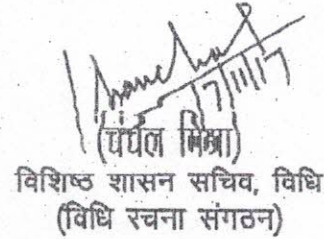 17/11/17
(चंचल मिश्रा)
विशिष्ठ शासन सचिव, विधि
(विधि रचना संगठन)